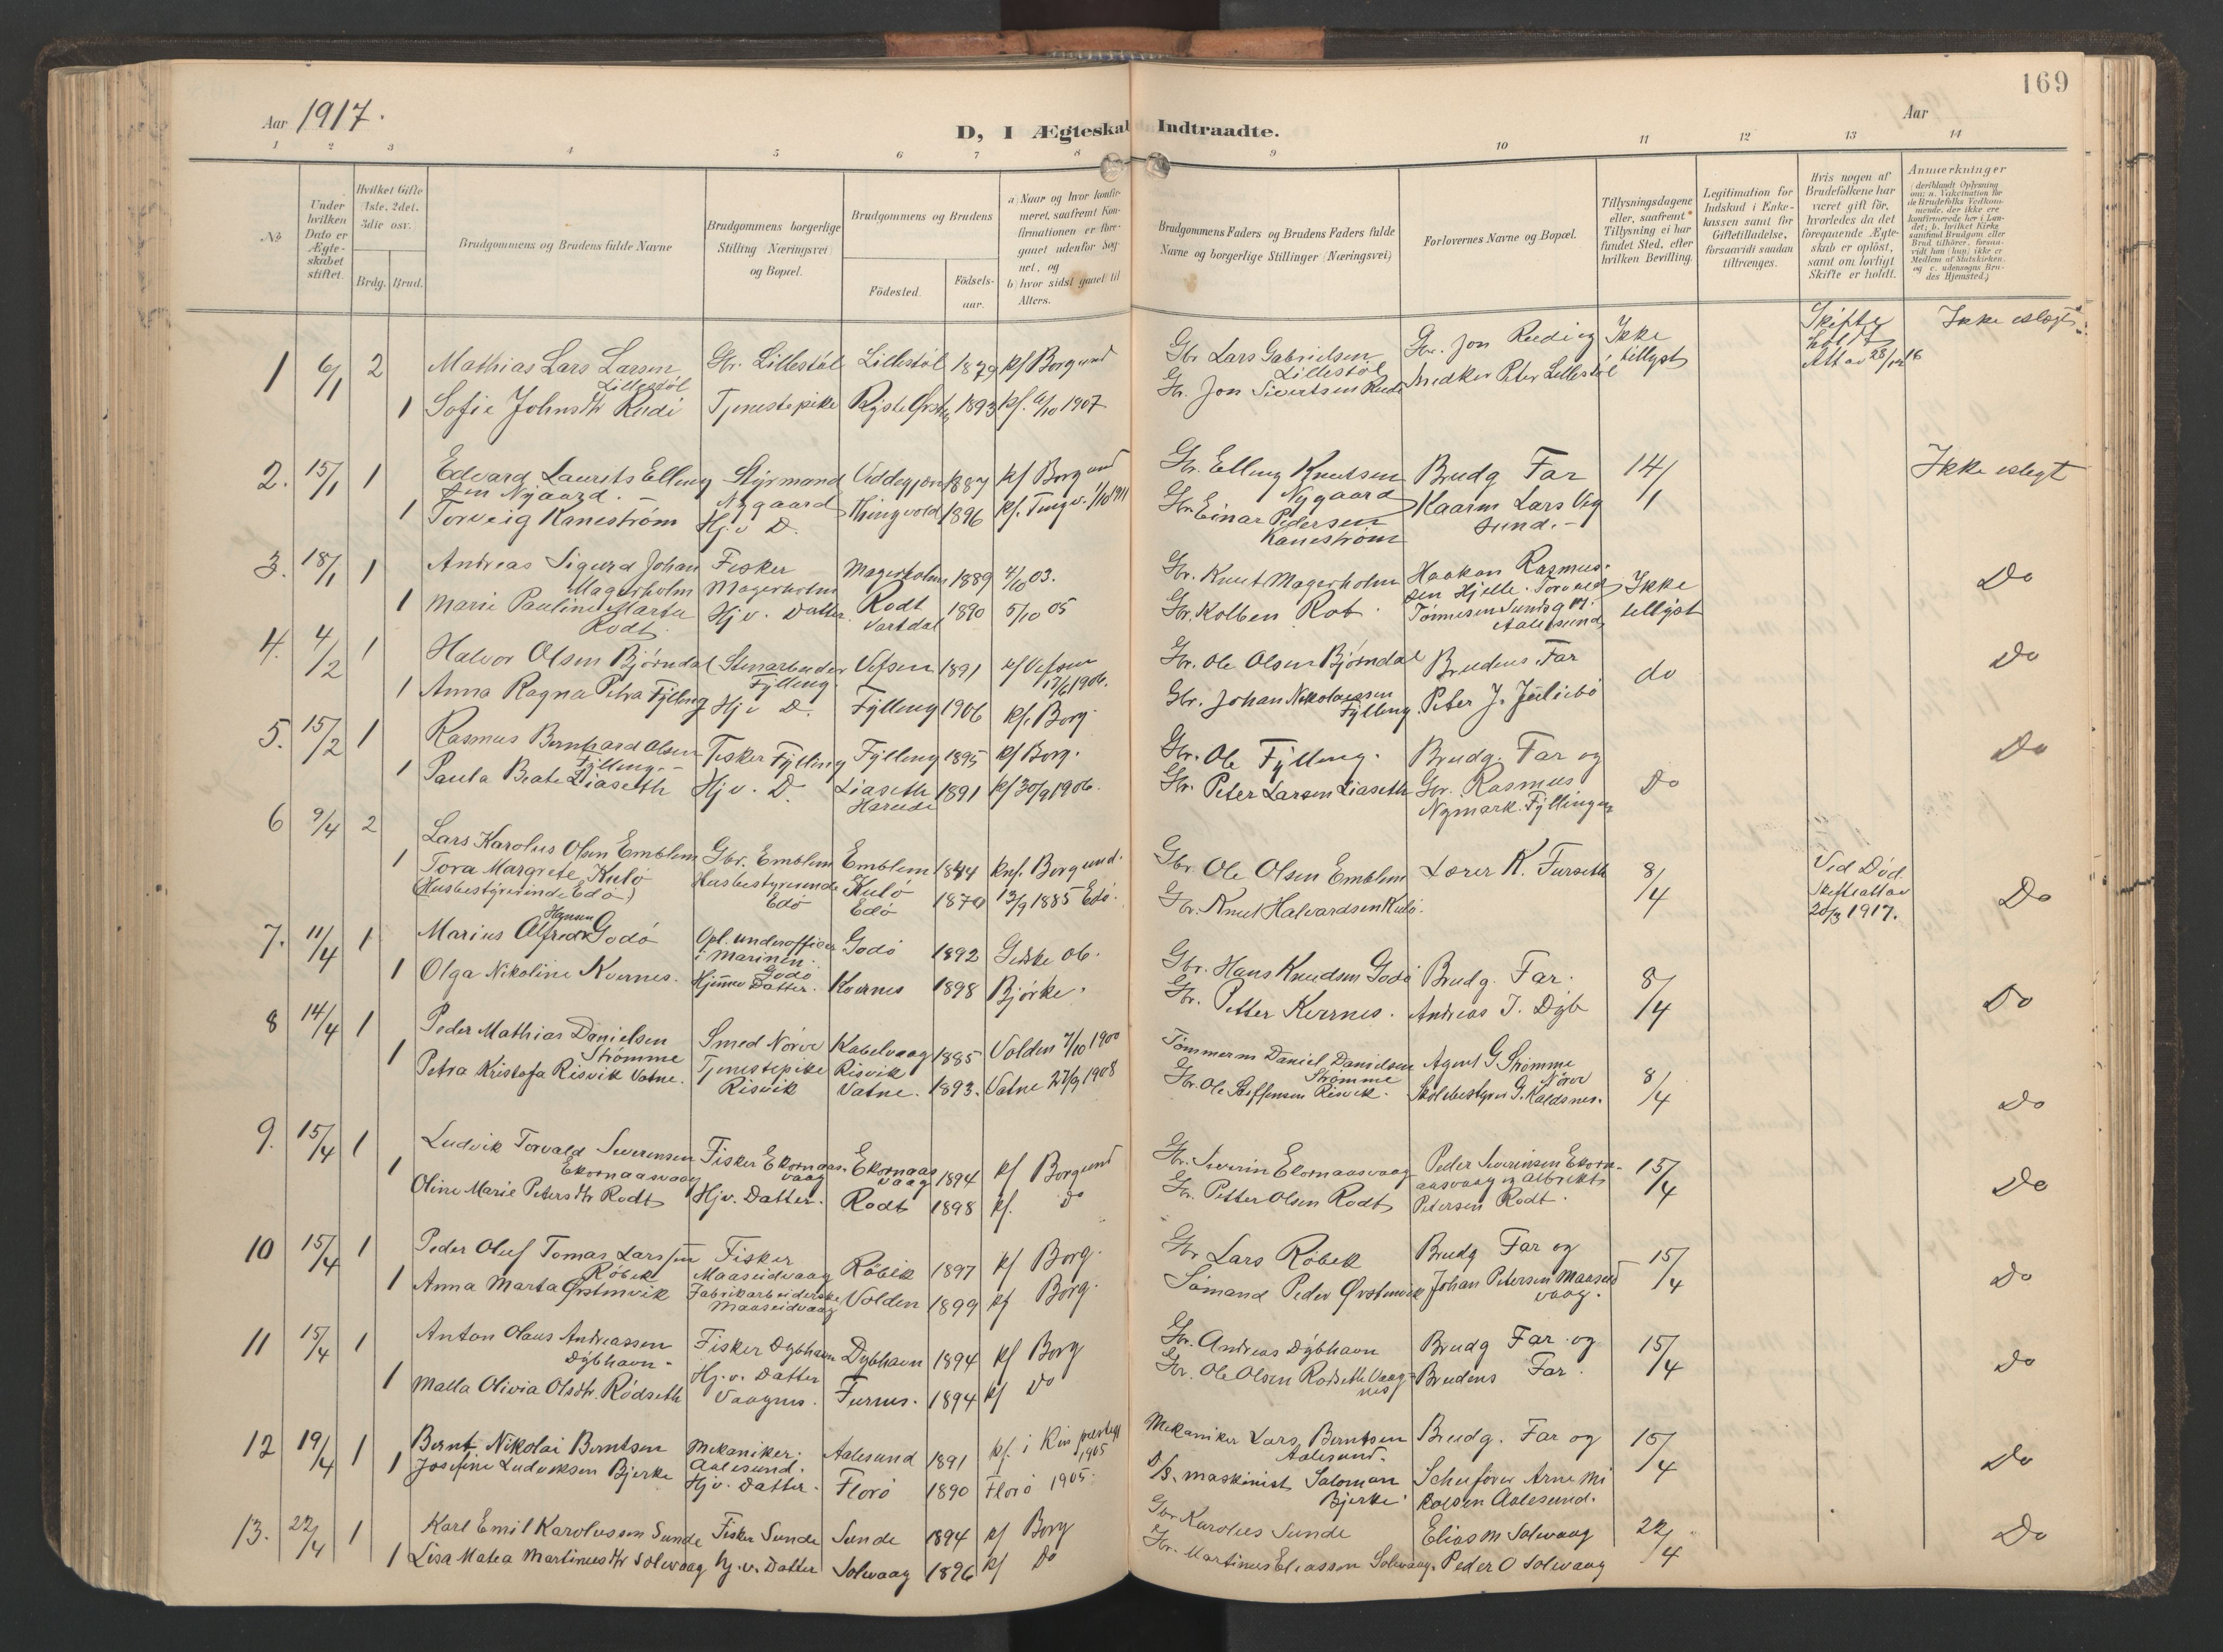 169
Aar 1917.
D, I Ægteskab Indtraadte.
Aar
1 2 3 4 5 6 7 8 9 10 11 12 13 14
No
Under hvilken Dato er Ægte-skabet stiftet.
Hvilket Gifte (1ste, 2det, 3die osv.
Brdg. Brud.
Brudgommens og Brudens fulde Navne
Brudgommens borgerlige Stilling (Næringsvei) og Bopæl.
Brudgommens og Brudens
Födested.
Födsels-aar.
a) Naar og hvor konfir-meret, saafremt Kon-firmationen er fore-gaaet udenfor Sog-net, og b) hvor sidst gaaet til Alters.
Brudgommens Faders og Brudens Faders fulde Navne og borgerlige Stillinger (Næringsvei)
Forlovernes Navne og Bopæl.
Tillysningsdagene eller, saafremt Tillysning ei har fundet Sted, efter hvilken Bevilling.
Legitimation for Indskud i Enke-kassen samt for Giftetilladelse, forsaavidt saadan tiltrænges.
Hvis nogen af Brudefolkene har været gift før, hvorledes da det foregaaende Ægte-skab er oplöst, samt om lovligt Skifte er holdt.
Anmærkninger
1 6/1 2 Mathias Lars Larsen Lillestøl Gbr. Lillestøl Lillestøl 1879 kf Borgund Gbr Lars Gabrielsen Lillestøl Gbr. Jon Rudi og Ikke tillyst Skifte holdt Att av 28/12 16 Ikke eslegt
1 Sofie Johnsdtr Rudi Tjenestepike 1893 kf. 1907 Gbr. Jon Sivertsen Rudi Snedker Peter Lillestøl
2. 15/1 1 Edvard Laurits Elling sen Nygaard. Styrmand Nygaard 1887 kf Borgund Gbr. Elling Knutsen Nygaard Brudg Far 14/1 Ikke eslegt
1 Torveig Kanestrøm Hj. v D. Thingvold 1896 kf. Tingv. 1/10 1911 Gbr Einar Pedersen Kanestrøm Kaarm Lars Vig sund.
3. 18/1 1 Andreas Sigurd Johan Magerholm Fisker Magerholm Magerholm 1889 4/10 03. Gbr. Knut Magerholm Haakon Rasmus-sen Hjelle. Torvald Ikke tillyst Do
1 Marie Pauline Marta Rodt Hj v. Datter. Rodt Vartdal 1890 5/10 05 Gbr. Kolben Rot. Aalesund
4. 4/2 1 Halvor Olsen Bjørndal Stenarbeider Fylling. Vefsen 1891 kf Vefsen 17/6 1906. Gbr. Ole Olsen Bjørndal Brudens Far do Do
1 Anna Ragna Petra Fylling Hj v D. Fylling 1906 kf. Borg. Gbr. Johan Nikolaissen Fylling. Peter J. Juliebø
5. 15/2 1 Rasmus Bernhard Olsen Fylling. Fisker Fylling Fylling 1895 kf Borg. Gbr. Ole Fylling. Brudg. Far og Do Do
1 Paula Beate Liaseth Hj v. D. Liaseth 1891 kf 30/9 1906. Gbr. Peter Larsen Liaseth Gbr. Rasmus Nymark. Fyllingen
6 9/4 2 Lars Karolus Olsen Emblem Gbr. Emblem Emblem 1844 knf. Borgund. Gbr. Ole Olsen Emblem Lærer K. Furseth 8/4 Ved Død Skifteatt av 20/3 1917. Do
1 Tora Margrete Kulø (Husbestyrerinde Edø) Husbestyrerinde Edø Kulø Edø 1870 13/9 1885 Edø. Gbr. Knut Halvardsen Kulø.
7. 11/4 1 Marius Alfred Hansen Godø Opl. underofficer i Marinen. Godø Godø 1892 Giske 06. Gbr. Hans Knudsen Godø Brudg. Far. 8/4 Do
1 Olga Nikoline Kvernes. Hjemmev Datter. Kvernes 1898 Bjørke. Gbr. Petter Kvernes. Andreas J. Dyb
8 14/4 1 Peder Mathias Danielsen Strømme Smed Nørve Kabelvaag 1885 Volden 7/10 1900 Tømmerm Daniel Danielsen Strømme Agent G Strømme Nørve 8/4 Do
1 Petra Kristofa Risvik Vatne. Tjenestepike Risvik Risvik Vatne. 1893. Vatne 27/9 1908 Gbr. Ole Steffensen Risvik. Skolebestyrer G. Kaldsnes.
9. 15/4 1 Ludvik Torvald Severensen Ekornaasvaag Fisker Ekornaas-vaag Ekornaas vaag 1894 kf Borgund Gbr. Severin Ekornaasvaag Peder Severinsen Ekorn-aasvaag og Albrekt 15/4 Do
1 Oline Marie Petersdtr Rodt Hjv. Datter. Rodt 1898 kf. Do Gbr. Petter Olsen Rodt Petersen Rodt.
10 15/4 1 Peder Oluf Tomas Larssen Røbek Fisker Maaseidvaag Røbek 1897 kf Borg. Gbr Lars Røbek Brudg Far og 15/4 Do
1 Anna Marta Ørstenvik Fabrikarbeiderske Maaseidvaag Volden 1899 kf Borg. Sømand Peder Ørstenvik Johan Petersen Maaseid vaag.
11 15/4 1 Anton Olaus Andreassen Dybhavn. Fisker Dybhavn Dybhavn 1894 kf Borg Gbr. Andreas Dybhavn Brudg Far og 15/4 Do
1 Malla Olivia Olsdtr. Rødseth Hj. v. Datter Vaagnes. Furnes. 1894 kf Do Gbr. Ole Olsen Rødseth Vaag-nes Brudens Far.
12 19/4 1 Bernt Nikolai Berntsen Mekaniker. Aalesund. Aalesund 1891 kf. i Kin prestegj 1905 Mekaniker Lars Berntsen Aalesund. Brudg. Far og 15/4 Do
1 Josefine Ludviksen Bjerke Hjv. Datter. Florø 1890 Florø 1905. D/S. maskinist Saloman Bjerke Aalesund.
13. 22/4 1 Karl Emil Karolussen Sunde Fisker Sunde Sunde 1894 kf Borg Gbr Karolus Sunde Elias M Solevaag 22/4 Do
1 Lisa Matea Martinusdtr Solevaag hj. v. Datter Solevaag 1896 kf Do Gbr. Martinus Eliassen Solevaag. Peder O Solevaag